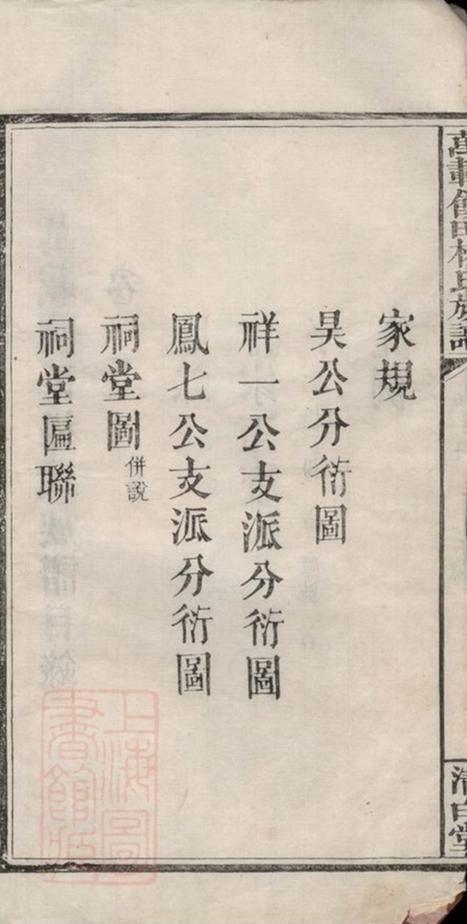 家規
昊公分衍圖
祥一公支派分衍圖
鳳七公支派分衍圖
祠堂圖 併說
祠堂匾聯
清白堂
上海圖書館藏